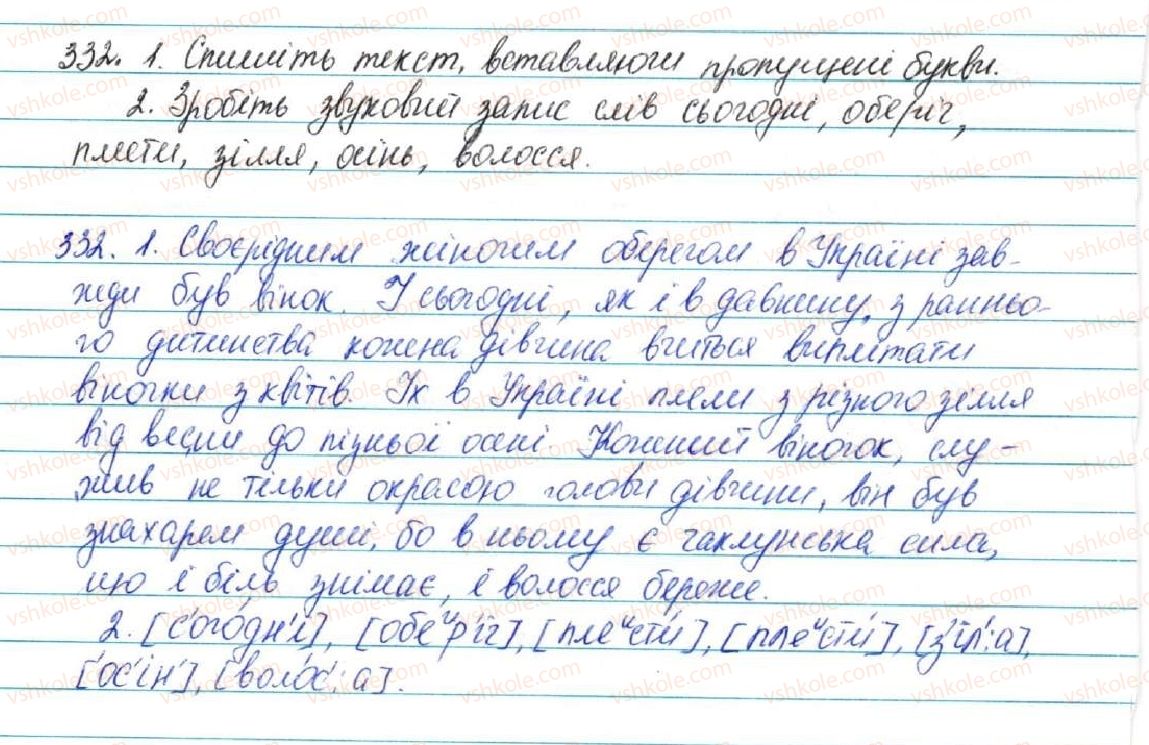 332. 1. Спишіть текст, вставляючи пропущені букви.
2. Зробіть звуковий запис слів сьогодні, оберіг,
плести, зілля, осінь, волосся.
332. 1. Своєрідним жіночим оберегом в Україні зав-
жди був вінок. І сьогодні, як і в давнину, з ранньо-
го дитинства кожена дівчина вчиться виплітати
віночки з квітів. Їх в Україні плели з різного зілля
від весни до пізньої осені. Кожний віночок, слу-
жив не тільки окрасою голови дівчини, він був
знахарем душі, бо в ньому є чаклунська сила,
що і біль знімає, і волосся береже.
2. [с'ого́дн'і], [обеᴵр'іг], [плеᴵсти́], [плеᴵсти́], [з'іл':а],
[о́с'ін'], [воло́с':а].